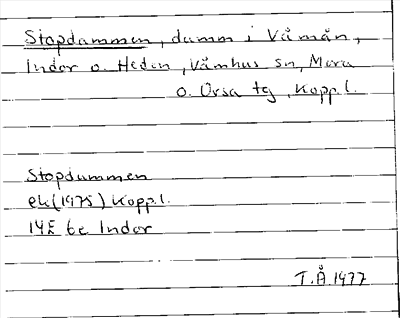 Stopdammen, damm i Våmån,
Indor o. Heden, Våmhus sn, Mora
o. Orsa tg, Kopp. l.
Stopdammen
ek (1975) Kopp. l.
14E 6e Indor
T.Å. 1977